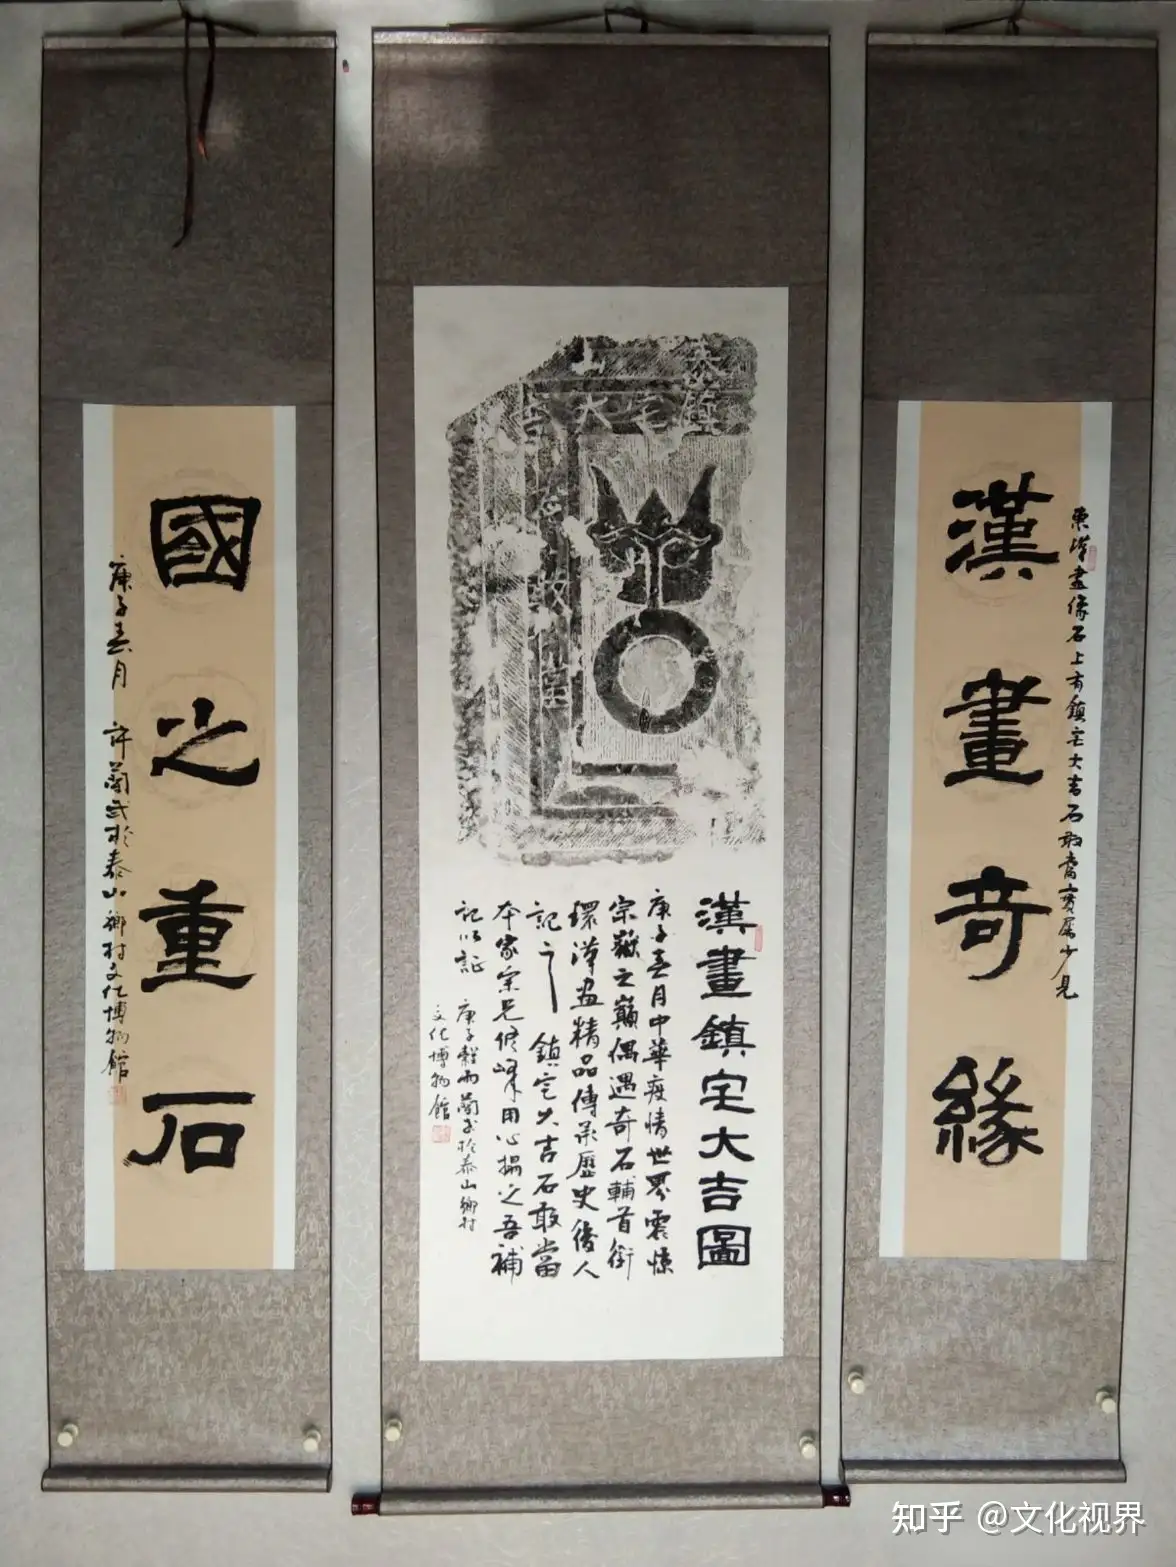 漢畫奇緣
東漢畫像石上有鎮宅大吉石敢當實屬少見
泰山
鎮宅大吉
敢當
漢畫鎮宅大吉圖
庚子春月中華疫情世界震悚
宗嶽之巔偶遇奇石輔首銜
環漢畫精品傳承歷史後人
記之 鎮宅大吉石敢當
本家宗兄修峰用心搨之吾補
記以証
庚子穀雨蘭武於泰山鄉村
文化博物館
國之重石
庚子春月 許蘭武於泰山鄉村文化博物館
知乎 @文化视界